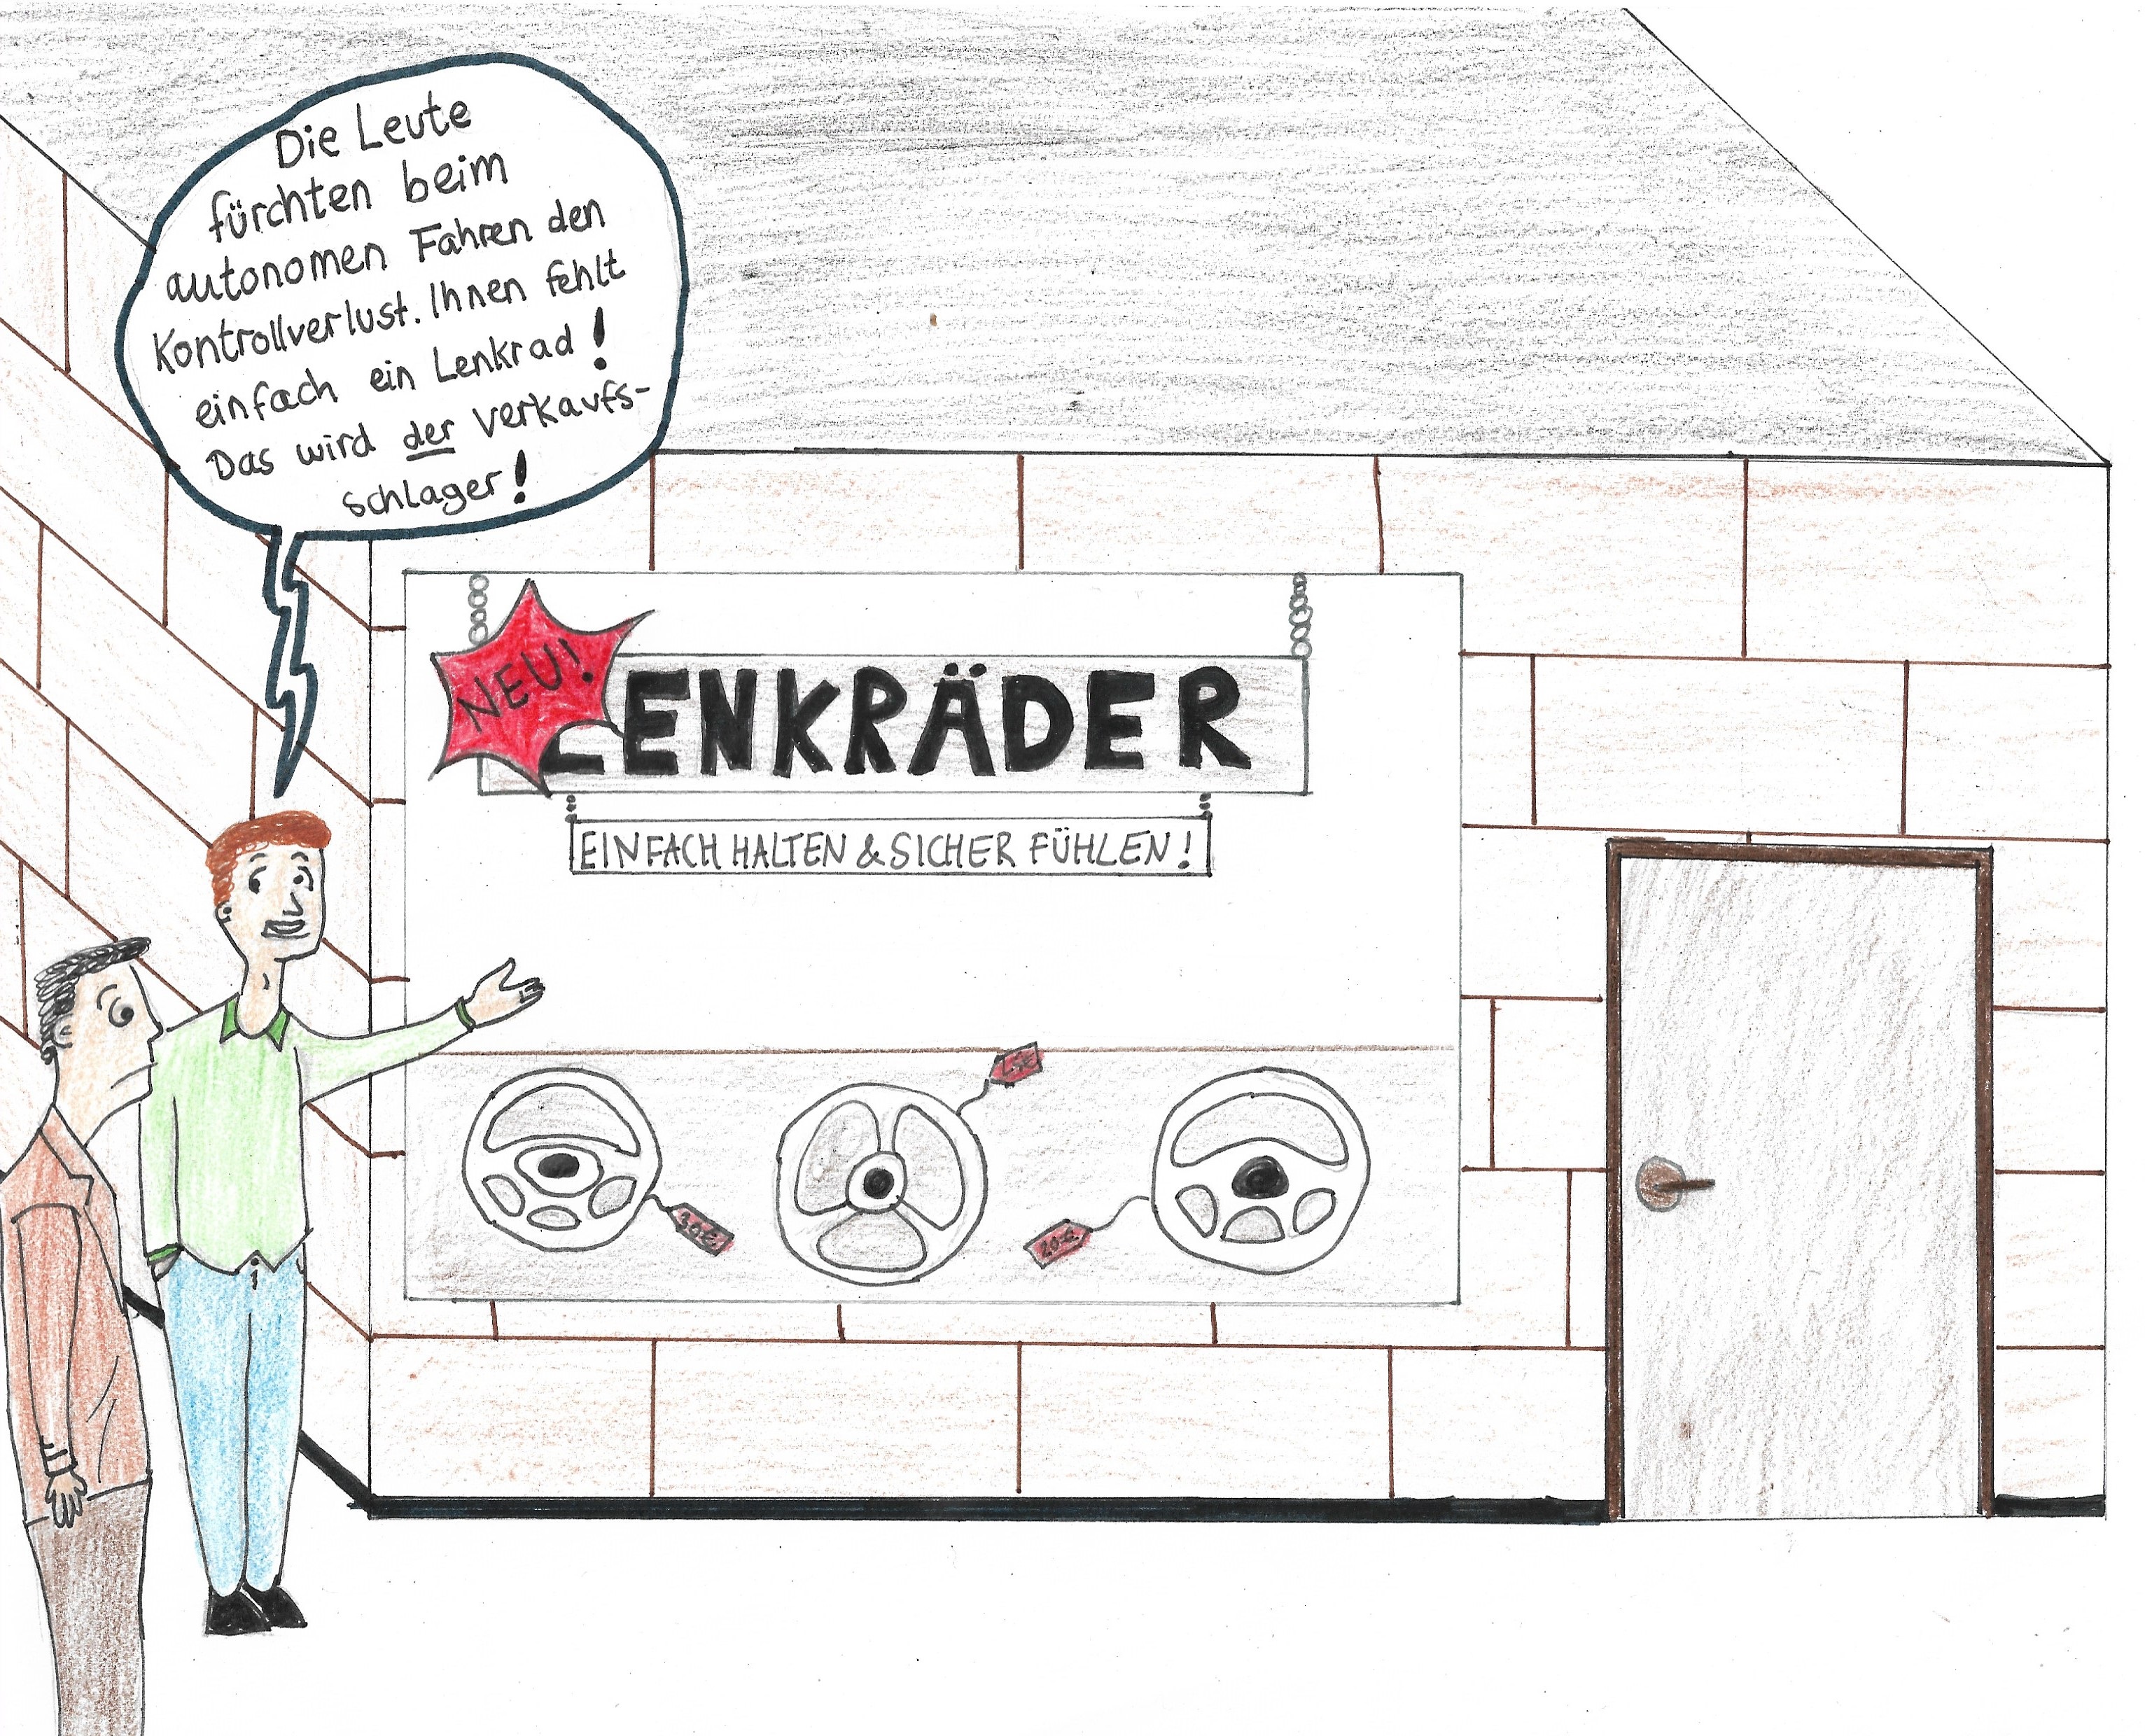 Die Leute
fürchten beim
autonomen Fahren den
Kontrollverlust. Ihnen fehlt
einfach ein Lenkrad!
Das wird der Verkaufs-
schlager!
NEU!
LENKRÄDER
EINFACH HALTEN & SICHER FÜHLEN!
30€
20€